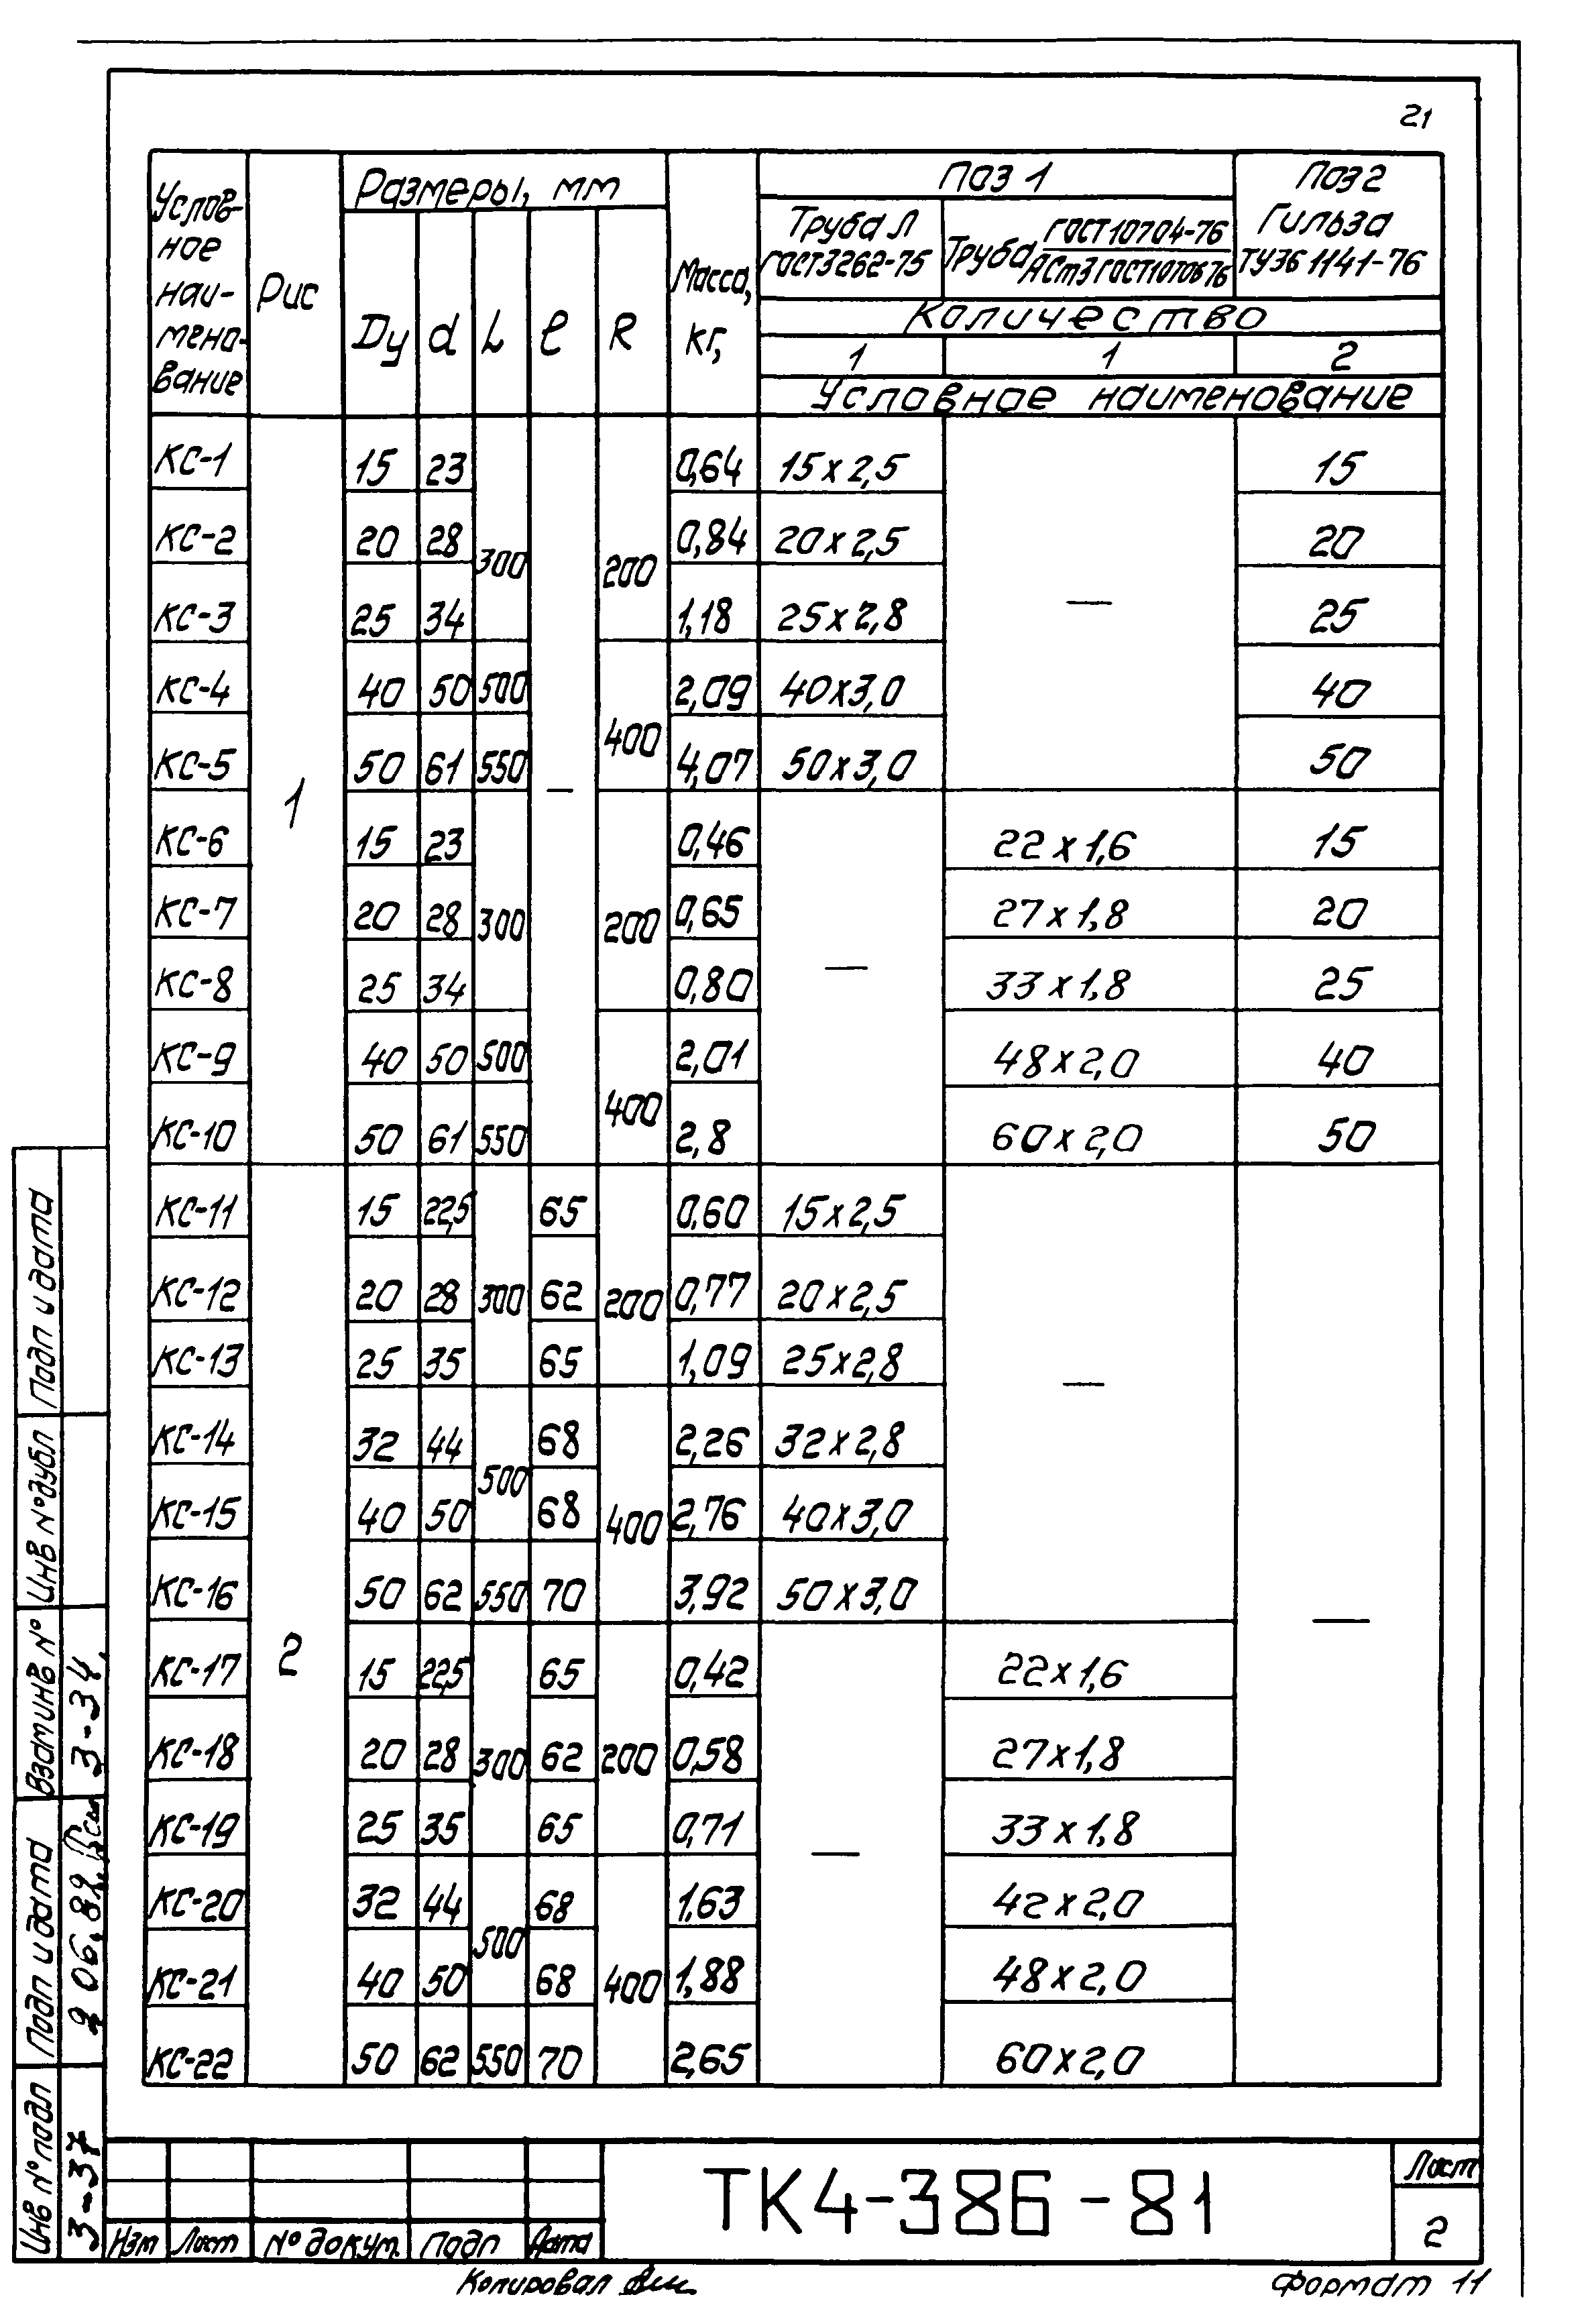 21
Условное наименование Рис Размеры, мм Масса, кг, Поз 1 Поз 2
Dу d L ℓ R Труба Л ГОСТ 3262-75 Труба ГОСТ 10704-76 / АСт3 ГОСТ 10706 76 Гильза ТУ36 1141-76
Количество
1 1 2
Условное наименование
КС-1 1 15 23 300 — 200 0,64 15х2,5 — 15
КС-2 20 28 0,84 20х2,5 20
КС-3 25 34 1,18 25х2,8 25
КС-4 40 50 500 400 2,09 40х3,0 40
КС-5 50 61 550 4,07 50х3,0 50
КС-6 15 23 300 200 0,46 — 22х1,6 15
КС-7 20 28 0,65 27х1,8 20
КС-8 25 34 0,80 33х1,8 25
КС-9 40 50 500 400 2,01 48х2,0 40
КС-10 50 61 550 2,8 60х2,0 50
КС-11 2 15 22,5 300 65 200 0,60 15х2,5 — —
КС-12 20 28 62 0,77 20х2,5
КС-13 25 35 65 1,09 25х2,8
КС-14 32 44 500 68 400 2,26 32х2,8
КС-15 40 50 68 2,76 40х3,0
КС-16 50 62 550 70 3,92 50х3,0
КС-17 15 22,5 300 65 200 0,42 — 22х1,6
КС-18 20 28 62 0,58 27х1,8
КС-19 25 35 65 0,71 33х1,8
КС-20 32 44 500 68 400 1,63 42х2,0
КС-21 40 50 68 1,88 48х2,0
КС-22 50 62 550 70 2,65 60х2,0
Подп и дата
Инв № дубл
Взам инв № 3-34
Подп и дата 06,82
Инв № подл 3-37
Изм Лист № докум. Подп Дата
ТК4-386-81
Лист
2
Копировал
Формат 11